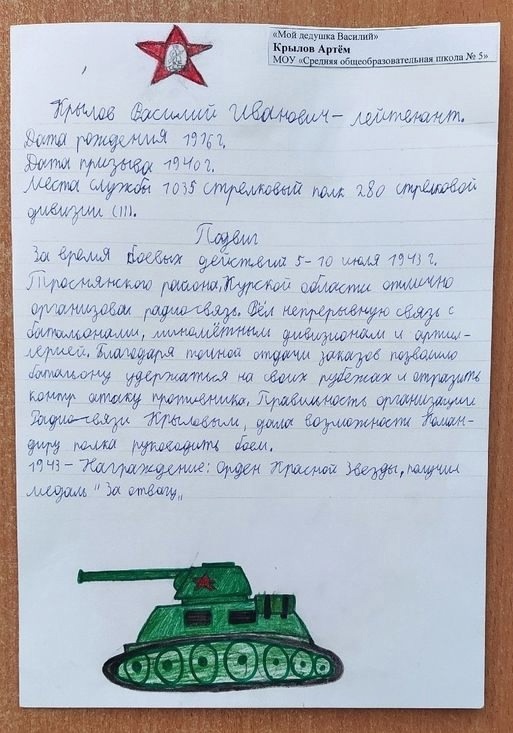 «Мой дедушка Василий»
Крылов Артём
МОУ «Средняя общеобразовательная школа № 5»
Крылов Василий Иванович – лейтенант.
Дата рождения 1916г.
Дата призыва 1940г.
Места службы 1035 стрелковый полк 280 стрелковой
дивизии (III).
Подвиг
За время боевых действий 5-10 июля 1943 г.
Троснянского района, Курской области отлично
организовал радио-связь. Вёл непрерывную связь с
батальонами, миномётным дивизионам и артил-
лерией. Благодаря точной отдачи заказов позволило
батальону удержаться на своих рубежах и отразить
контр атаку противника. Правильность организации
Радио-связи Крыловым, дала возможности Коман-
диру полка руководить боем.
1943 – Награждение: Орден Красной Звезды, получил
медаль "За отвагу„